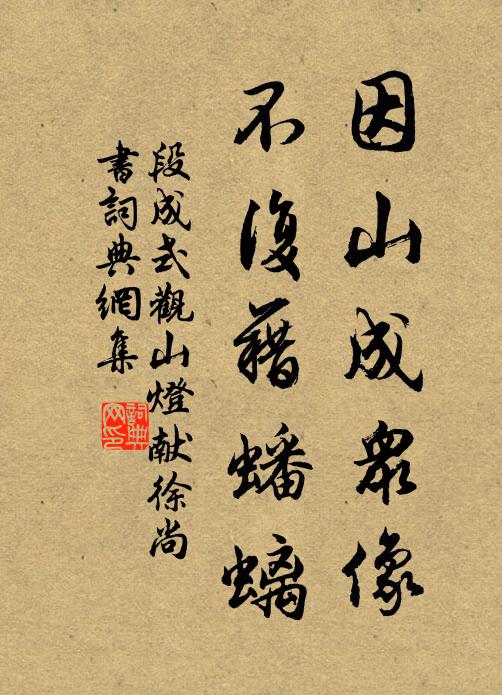 因山成眾像
不復藉蟠螭
段成式觀山燈献徐尚
書詞典網集
詞典网印